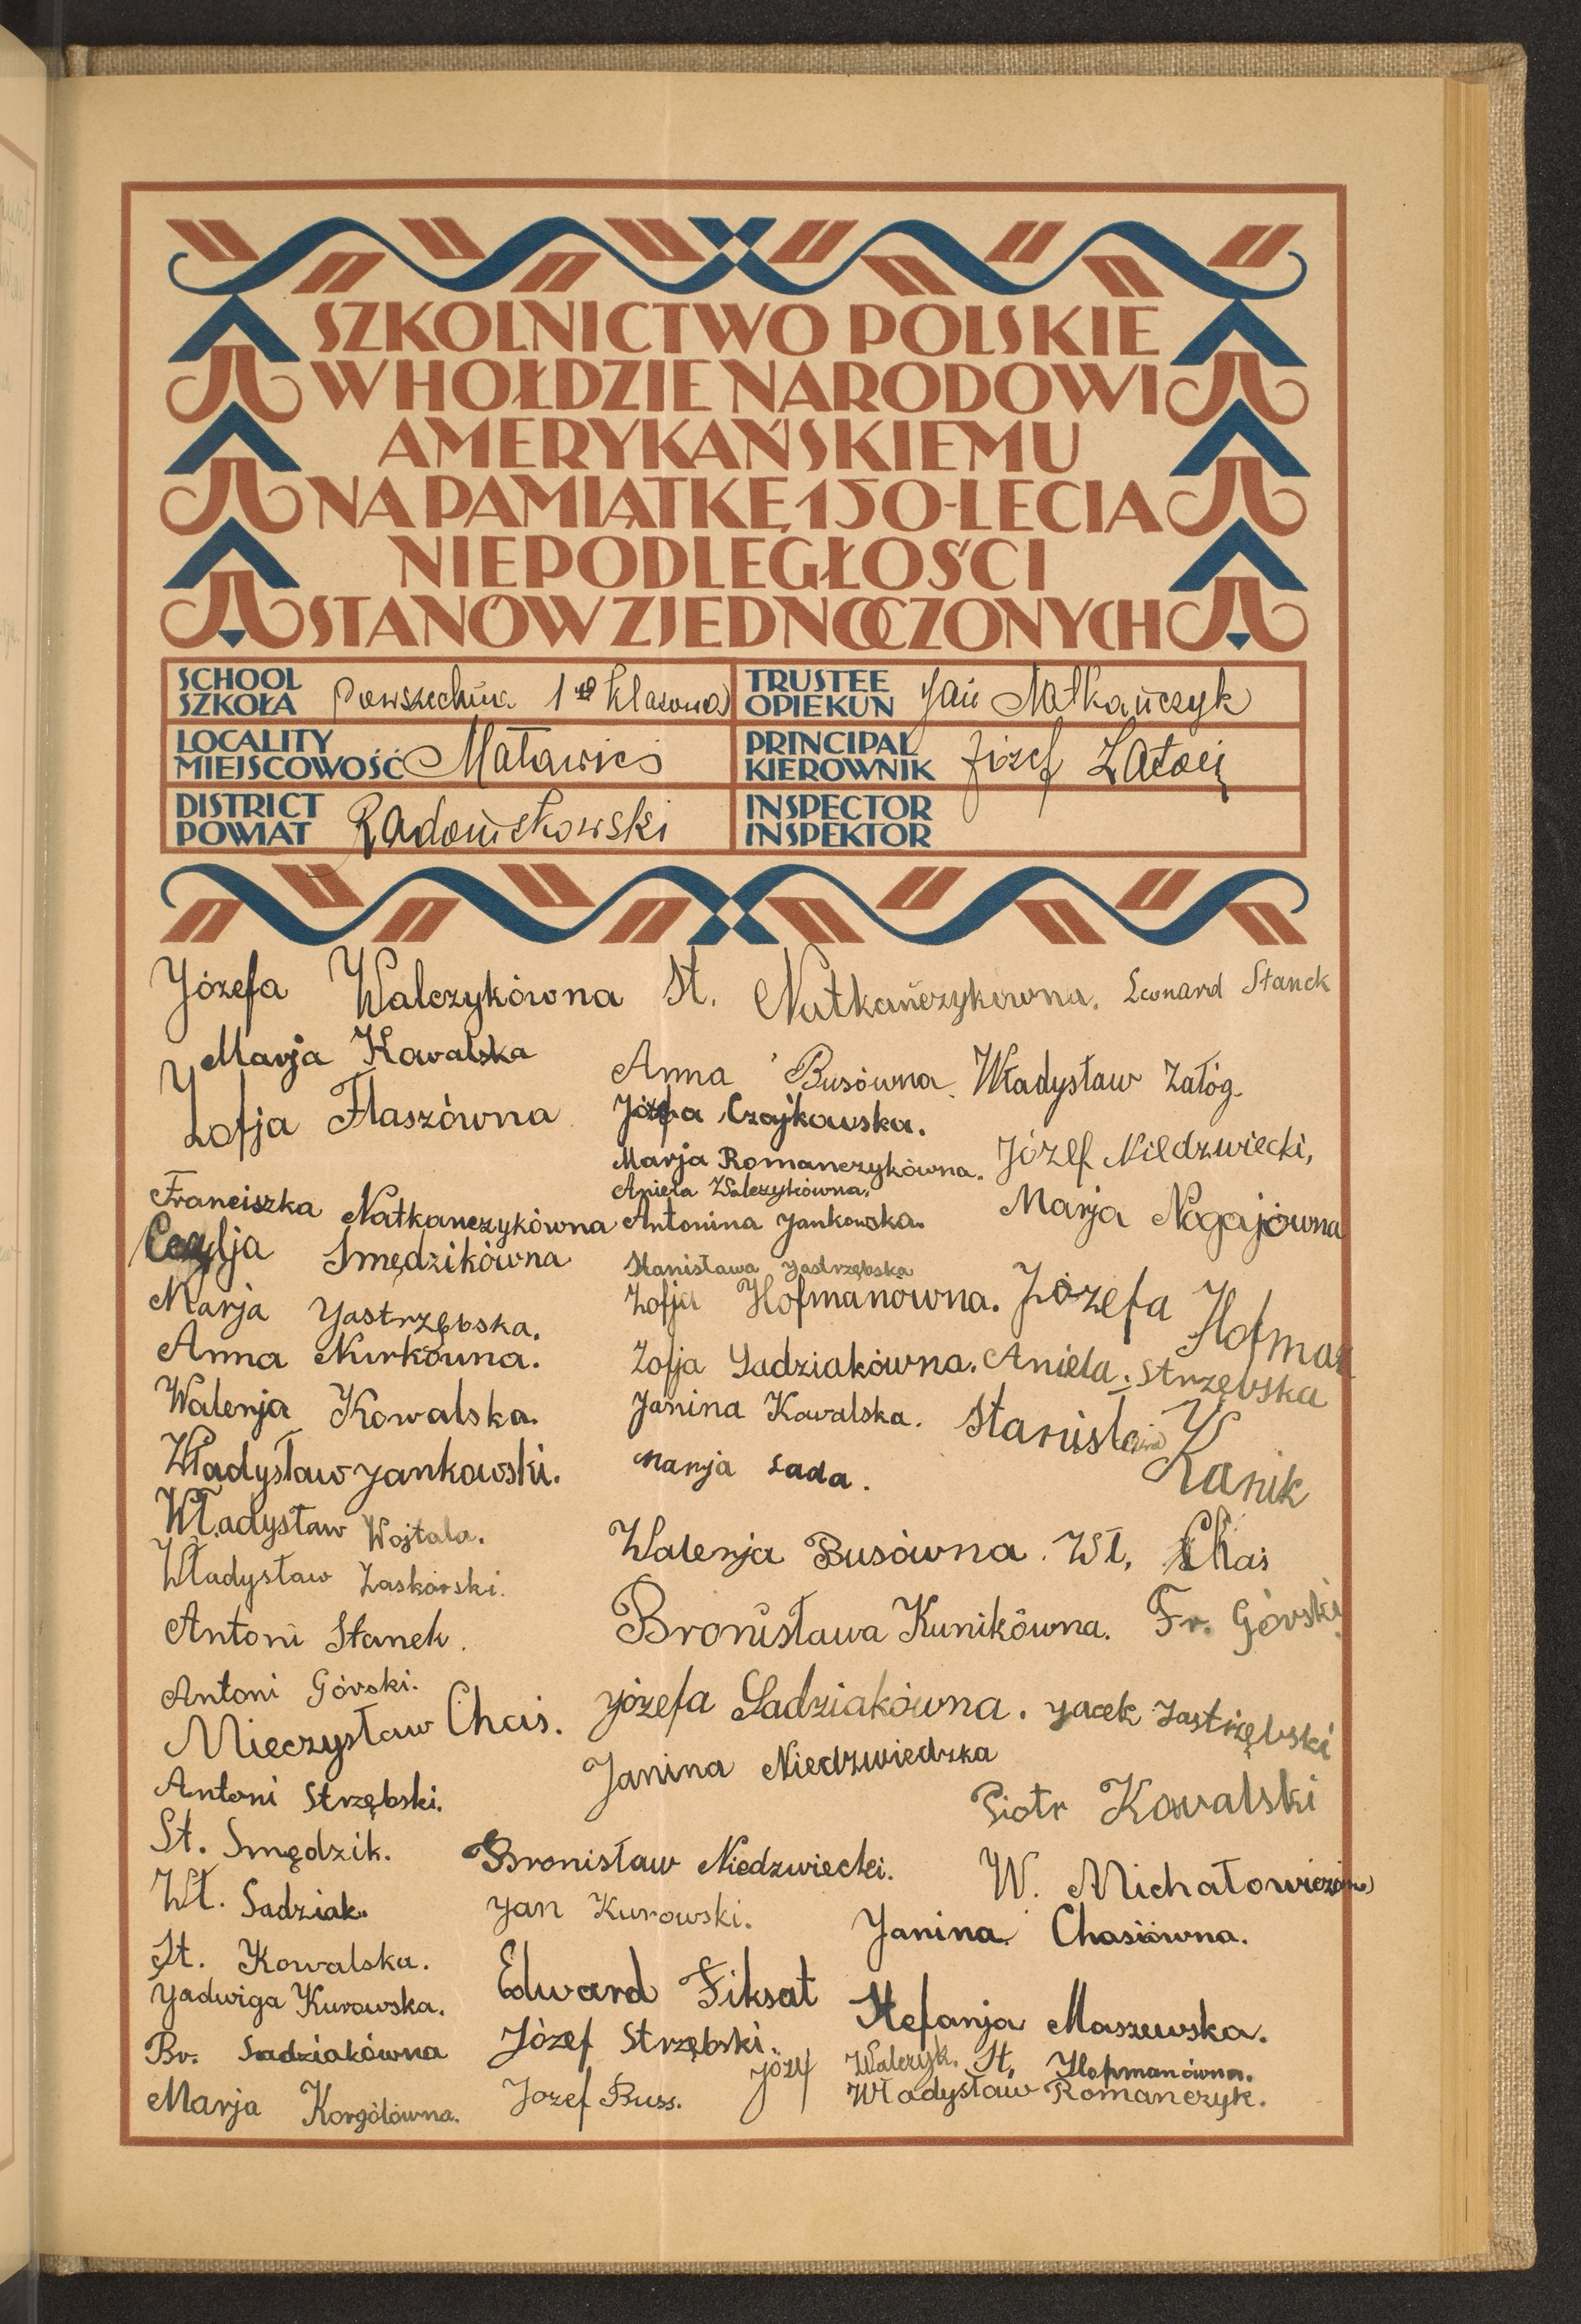 SZKOLNICTWO POLSKIE
W HOŁDZIE NARODOWI
AMERYKAŃSKIEMU
NA PAMIĄTKĘ 150-LECIA
NIEPODLEGŁOŚCI
STANÓW ZJEDNOCZONYCH
SCHOOL
SZKOŁA Powszechna 1 klasowa
TRUSTEE
OPIEKUN Jan Natkańczyk
LOCALITY
MIEJSCOWOŚĆ Maławieś
PRINCIPAL
KIEROWNIK Józef
DISTRICT
POWIAT Radomskowski
INSPECTOR
INSPEKTOR
Józefa Walczykówna
Marja Kowalska
Zofja Flaszówna
Franciszka Natkanczykówna
Cecylja Smędzikówna
Marja Jastrzębska.
Anna Nurkówna.
Walerja Kowalska.
Władysław Jankowski.
Władysław Wojtala.
Władysław Zaskórski.
Antoni Stanek.
Antoni Górski.
Mieczysław Chais.
Antoni Strzębski.
St. Smędzik.
Wł. Sadziak.
St. Kowalska.
Jadwiga Kurowska.
Br. Sadziakówna
Marja Korgólówna.
St. Natkańczykówna.
Anna Busówna.
Józefa Czajkowska.
Marja Romanczykówna.
Aniela Walczykówna.
Antonina Jankowska.
Stanisława Jastrzębska
Zofja Hofmanówna.
Zofja Sadziakówna.
Janina Kowalska.
Marja Sada.
Walerja Busówna.
Bronisława Kunikówna.
Józefa Sadziakówna.
Janina Niedzwiedzka
Bronisław Niedzwiecki.
Jan Kurowski.
Edward Fiksat
Józef Strzębski.
Józef Buss.
Leonard Stanek
Władysław Załóg.
Józef Niedzwiecki,
Marja Nogajówna
Józefa Hofman
Aniela Strzębska
Stanisława Kanik
Wł. Chais
Fr. Górski
Jacek Jastrzębski
Piotr Kowalski
W. Michałowiczów
Janina Chasiówna.
Stefanja Maszewska.
Józef Walczyk. St. Hofmanówna.
Władysław Romanczyk.